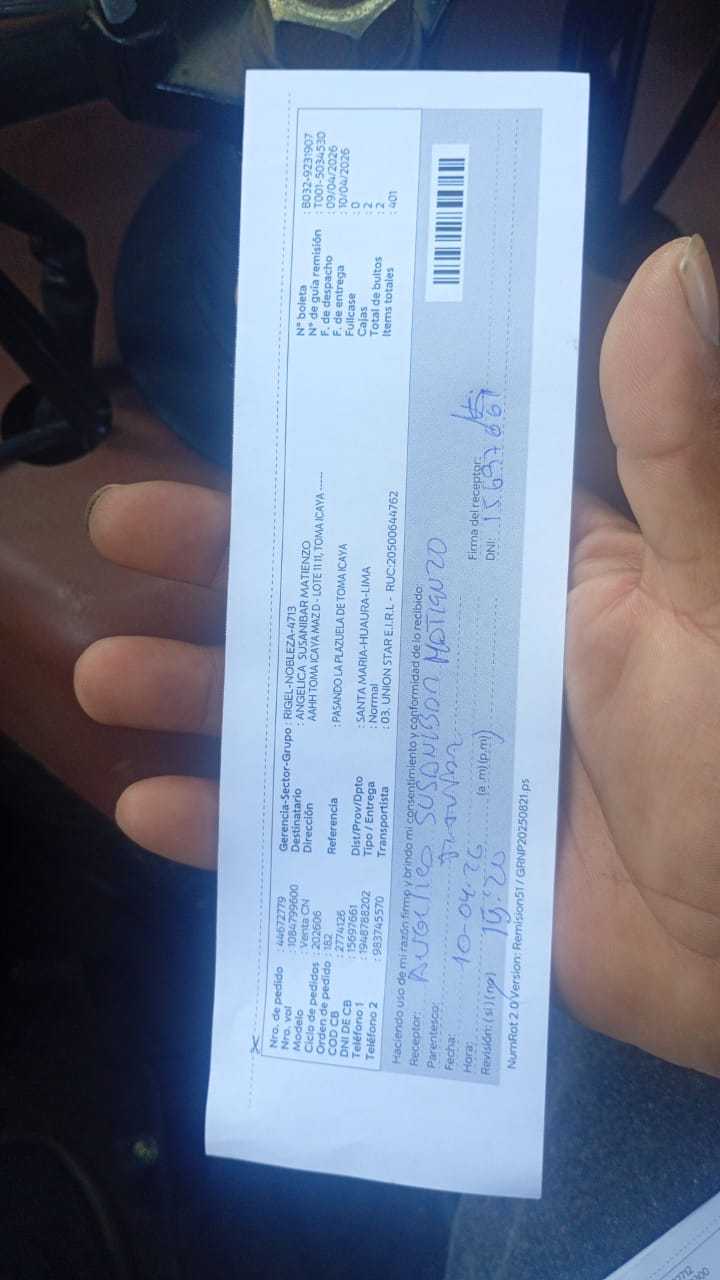 Nro. de pedido : 44672779
Nro. vol : 1084799600
Modelo : Venta CN
Ciclo de pedidos : 202606
Orden de pedido : 182
COD CB : 2774126
DNI DE CB : 15697661
Teléfono 1 : 1948788202
Teléfono 2 : 983745570
Gerencia-Sector-Grupo : RIGEL-NOBLEZA-4713
Destinatario : ANGELICA SUSANIBAR MATIENZO
Dirección : AAHH TOMA ICAYA MAZ D - LOTE 11 11, TOMA ICAYA -----
Referencia : PASANDO LA PLAZUELA DE TOMA ICAYA
Dist/Prov/Dpto : SANTA MARIA-HUAURA-LIMA
Tipo / Entrega : Normal
Transportista : 03. UNION STAR E.I.R.L - RUC:20500644762
N° boleta : B032-9231907
N° de guía remisión : T001-5034530
F. de despacho : 09/04/2026
F. de entrega : 10/04/2026
Fullcase : 0
Cajas : 2
Total de bultos : 2
Items totales : 401
Haciendo uso de mi razón firmo y brindo mi consentimiento y conformidad de lo recibido
Receptor: SUSANIBAR MATIENZO
Parentesco:
Fecha: 10-04-26
Hora: 15:20 (a.m)(p.m)
Revisión: (si)(no)
Firma del receptor:
DNI: 15697661
NumRot 2.0 Version: Remision51 / GRNP20250821.ps